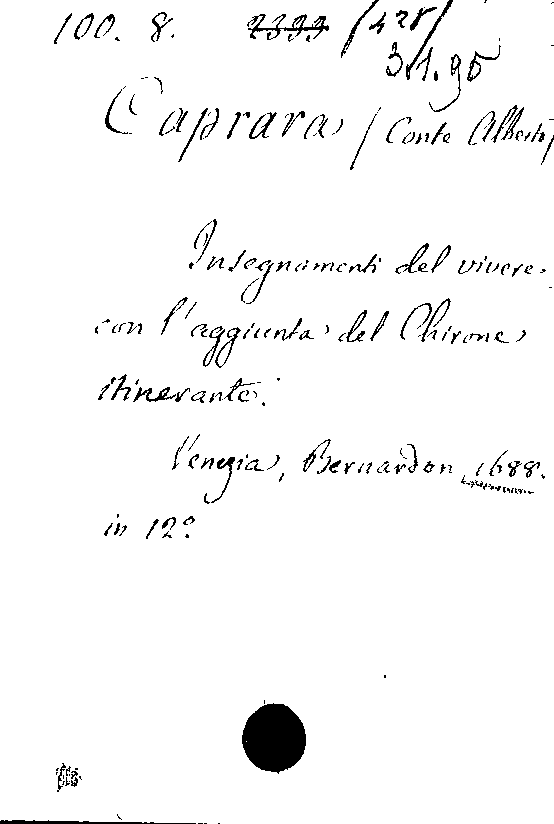 100. 8. 2333 (428)
3.1.95
Caprara (Conte Alberto)
Insegnamenti del vivere
con l'aggiunta del Chirone
itinerante.
Venezia, Bernardon 1688.
in 12º